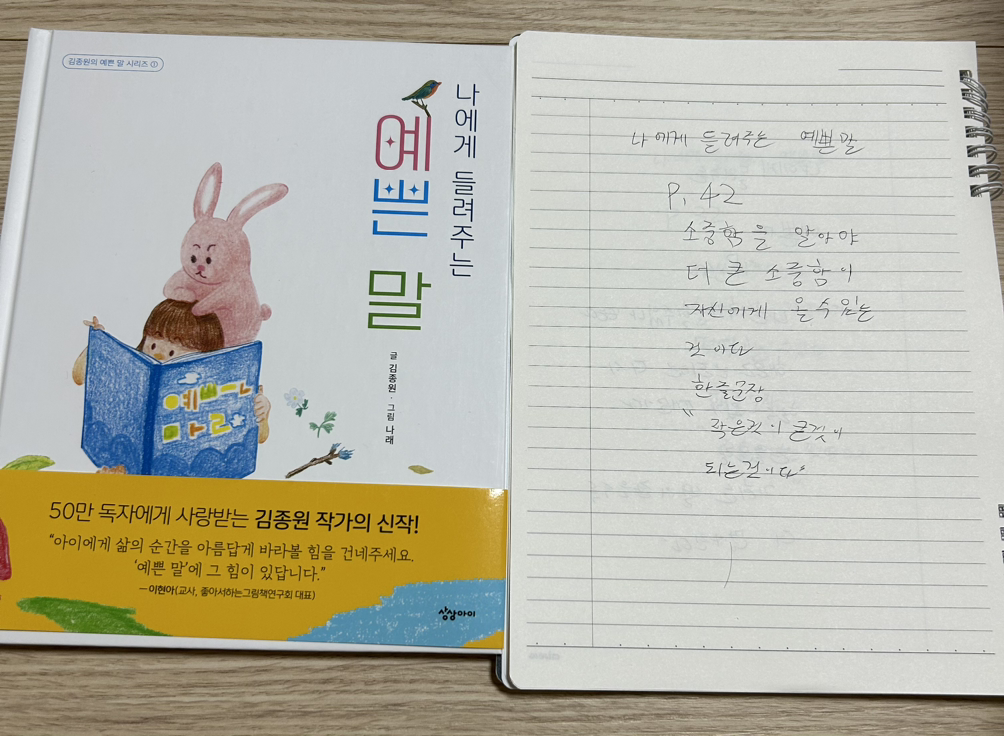 김종원의 예쁜 말 시리즈 ①
나에게 들려주는
예쁜 말
글 김종원 · 그림 나래
예쁜
말
50만 독자에게 사랑받는 김종원 작가의 신작!
“아이에게 삶의 순간을 아름답게 바라볼 힘을 건네주세요.
‘예쁜 말’에 그 힘이 있답니다.”
—이현아(교사, 좋아서하는그림책연구회 대표)
상상아이
나에게 들려주는 예쁜말
P. 42
소중함을 알아야
더 큰 소중함이
자신에게 올 수 있는
것이다
한줄문장
"작은것이 큰것이
되는것이다"